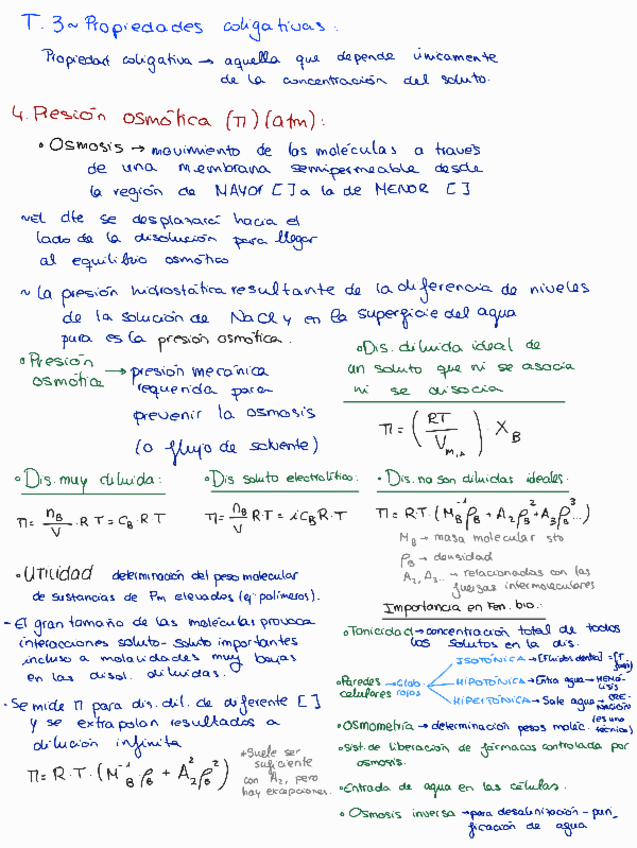 T. 3 ~ Propiedades coligativas:
Propiedad coligativa → aquella que depende únicamente
de la concentración del soluto.
4. Presión osmótica (π) (atm):
• Osmosis → movimiento de las moléculas a través
de una membrana semipermeable desde
la región de MAYOR [ ] a la de MENOR [ ]
~ el dte se desplazará hacia el
lado de la disolución para llegar
al equilibrio osmótico
~ La presión hidrostática resultante de la diferencia de niveles
de la solución de NaCl y en la superficie del agua
pura es la presión osmótica.
• Presión osmótica → presión mecánica
requerida para
prevenir la osmosis
(o flujo de solvente)
• Dis. diluida ideal de
un soluto que ni se asocia
ni se disocia
π = (RT / V_m,A) · X_B
• Dis. muy diluida:
π = n_B/V · R · T = C_B · R T
• Dis soluto electrolítico:
π = n_B/V R·T = i C_B R·T
• Dis. no son diluidas ideales:
π = R·T·(M_B⁻¹ρ_B + A₂ρ_B² + A₃ρ_B³...)
M_B → masa molecular sto
ρ_B → densidad
A₂, A₃... → relacionadas con las
fuerzas intermoleculares
• Utilidad determinación del peso molecular
de sustancias de Pm elevados (ej: polímeros).
- El gran tamaño de las moléculas provoca
interacciones soluto-soluto importantes
incluso a molaridades muy bajas
en las disol. diluidas.
- Se mide π para dis. dil. de diferente [ ]
y se extrapolan resultados a
dilución infinita
π = R·T·(M_B⁻¹ρ_B + A₂²ρ_B²)
* Suele ser
suficiente
con A₂, pero
hay excepciones.
Importancia en Fen. bio.:
• Tonicidad → concentración total de todos
los solutos en la dis.
• Paredes celulares → Glob. rojos
ISOTÓNICA → [Fluidos dental] =
HIPOTÓNICA → Entra agua → HEMÓLISIS
HIPERTÓNICA → Sale agua → CRENACIÓN
• Osmometría → determinación pesos molec. (es una técnica)
• Sist. de liberación de fármacos controlada por
osmosis.
• Entrada de agua en las células.
• Osmosis inversa → para desalinización-puri_
ficación de agua